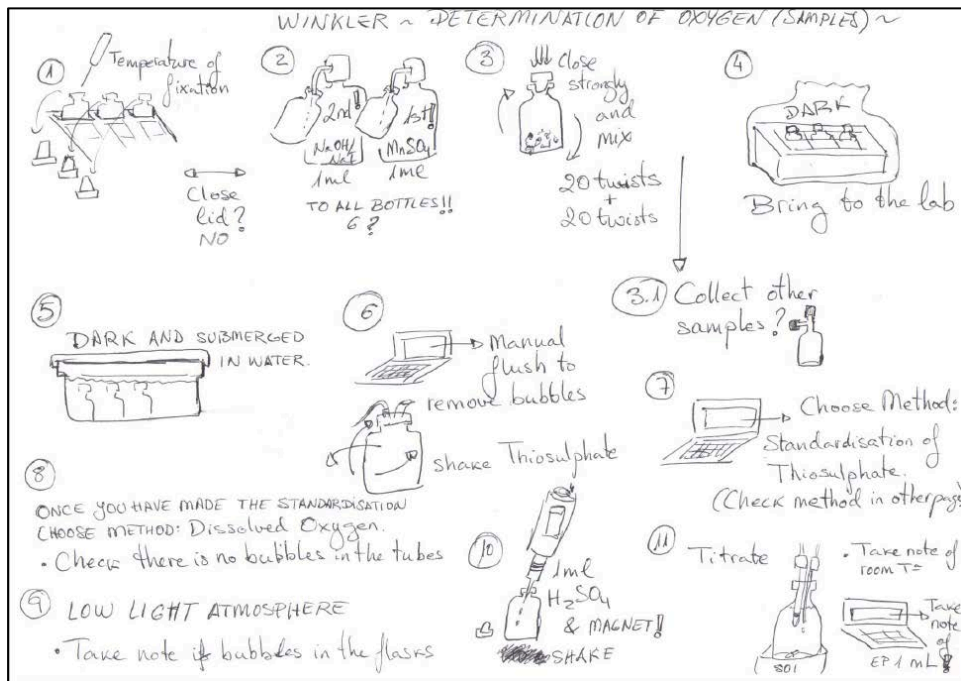 WINKLER ~ DETERMINATION OF OXYGEN (SAMPLES) ~
1
Temperature of
fixation
Close
lid?
NO
2
2nd!!
1st!!
NaOH/
NaI
MnSO4
1ml
1ml
TO ALL BOTTLES!!
6?
3
Close
strongly
and
mix
20 twists
+
20 twists
4
DARK
Bring to the lab
3.1 Collect other
samples?
5
DARK AND SUBMERGED
IN WATER.
6
Manual
flush to
remove bubbles
shake Thiosulphate
7
Choose Method:
Standardisation of
Thiosulphate.
(Check method in other page)
8
ONCE YOU HAVE MADE THE STANDARDISATION
CHOOSE METHOD: Dissolved Oxygen.
• Check there is no bubbles in the tubes
9 LOW LIGHT ATMOSPHERE
• Take note if bubbles in the flasks
10
1ml
H2SO4
& MAGNET!!
SHAKE
11
Titrate
• Take note of
room T=
Take
note
of
EP1 mL